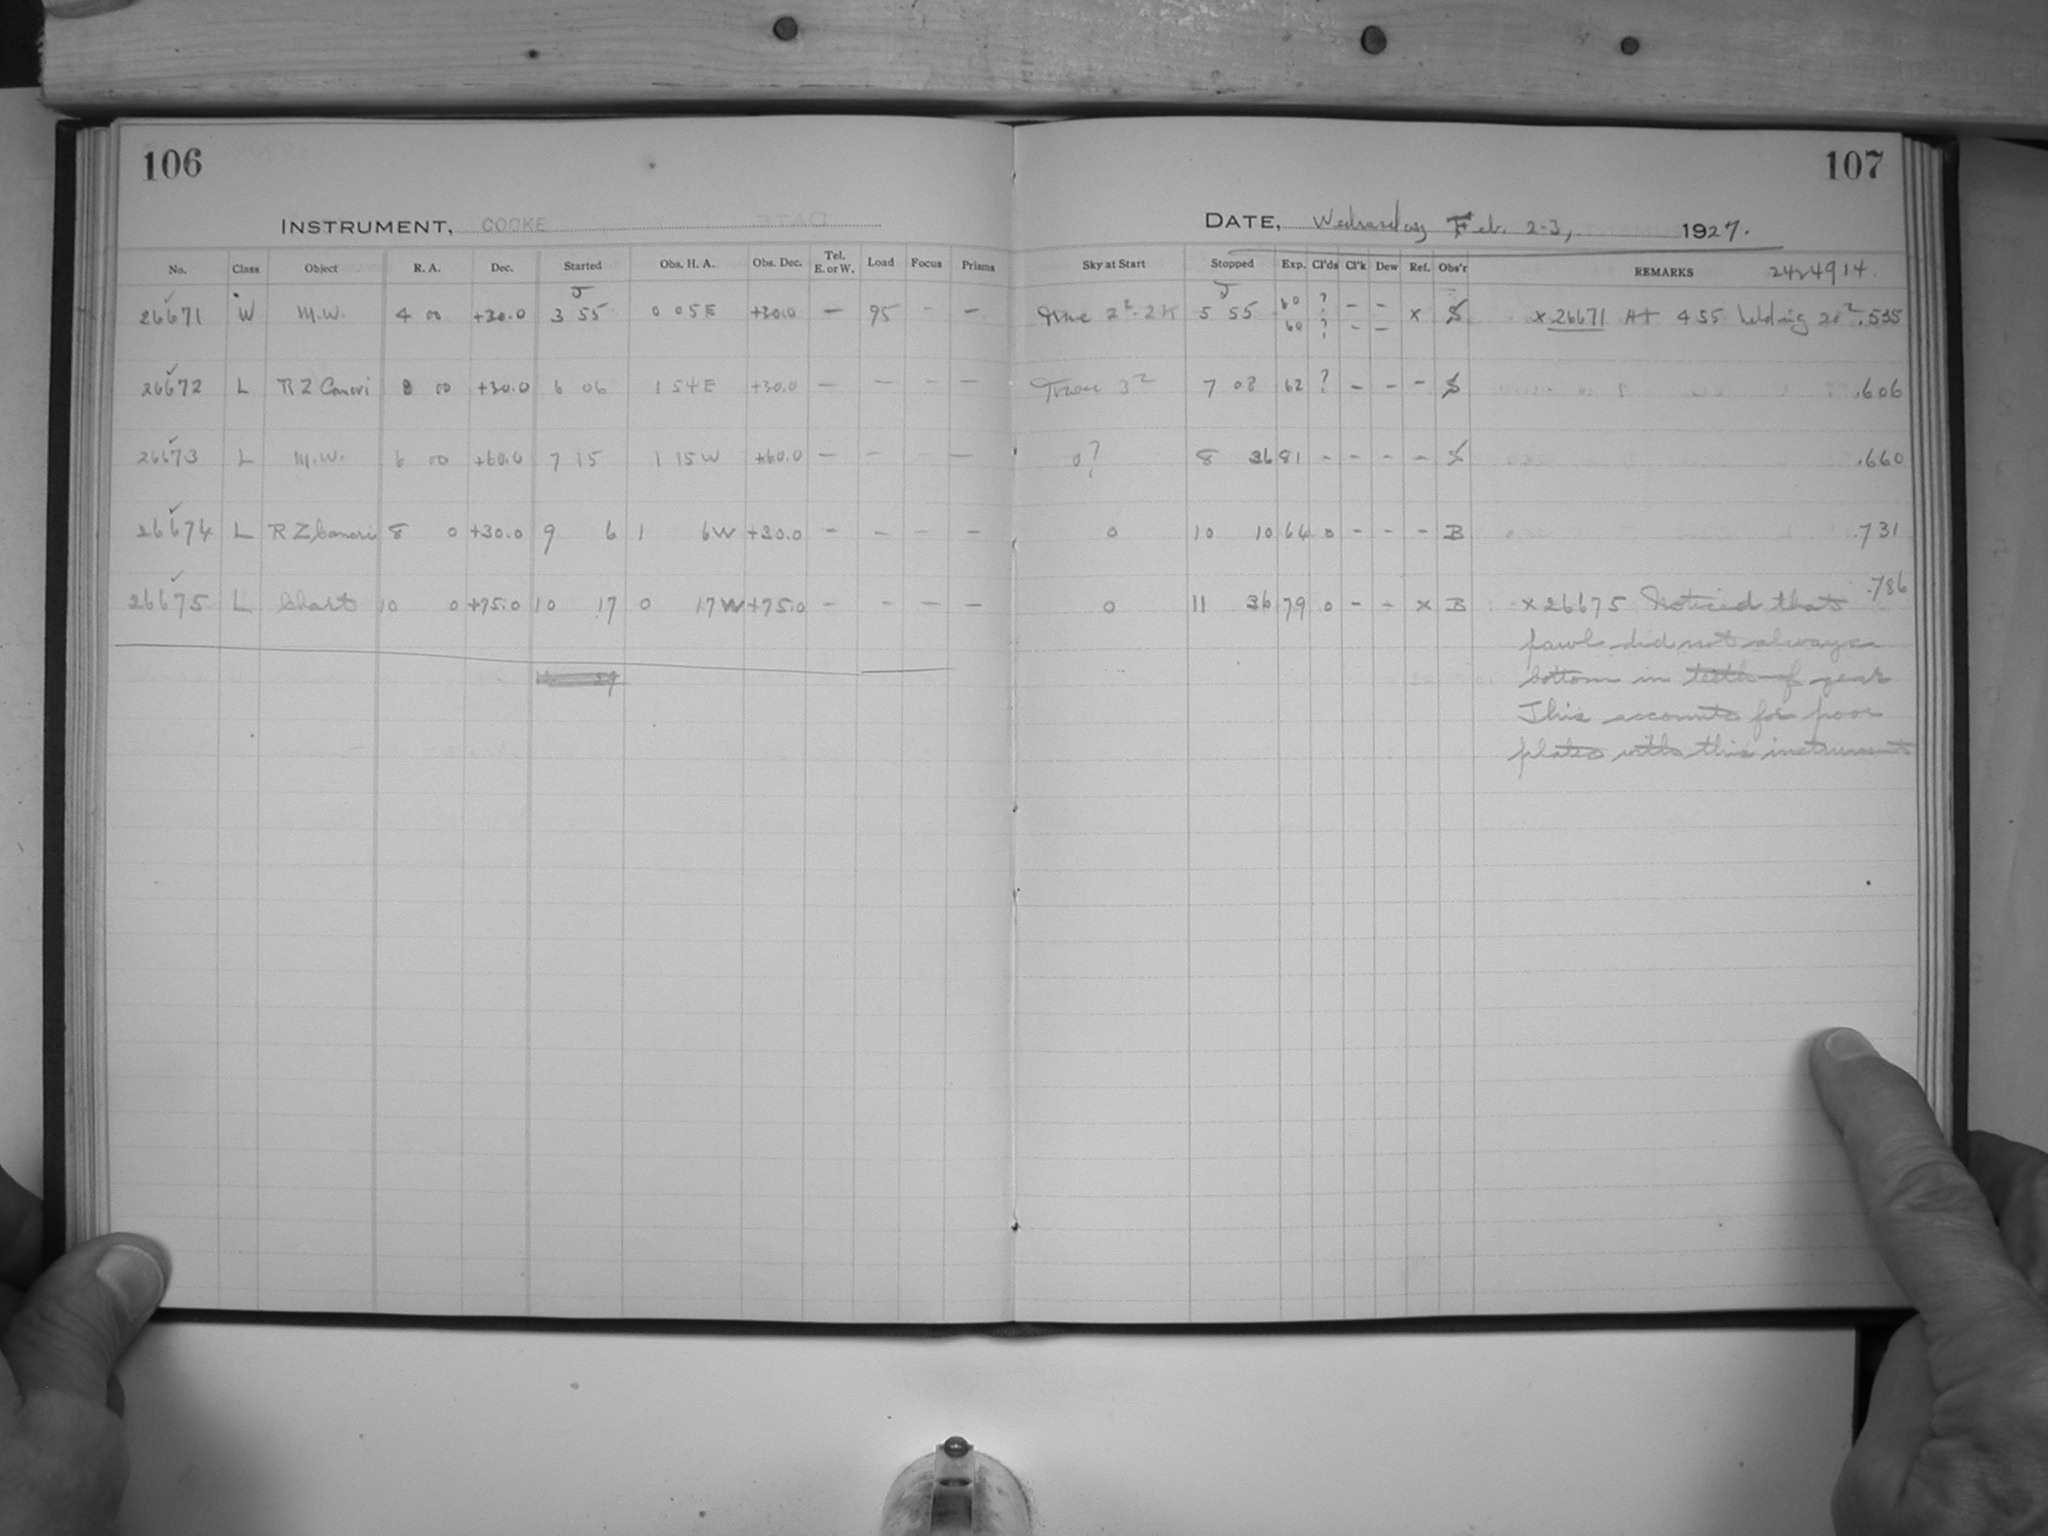 106
INSTRUMENT, COOKE
No. Class Object R. A. Dec. Started Obs. H. A. Obs. Dec. Tel. E. or W. Load Focus Prisms
J
26671 W M.W. 4 00 +30.0 3 55 0 05E +30.0 — 95 - —
26672 L R Z Cancri 8 00 +30.0 6 06 1 54E +30.0 — — - —
26673 L M.W. 6 00 +60.0 7 15 1 15W +60.0 — - —
26674 L R Z Cancri 8 0 +30.0 9 6 1 6W +30.0 - - - —
26675 L Chart 10 0 +75.0 10 17 0 17W +75.0 - - — —
107
DATE, Wednesday Feb. 2-3, 1927.
Sky at Start Stopped Exp. Cl'ds Cl'k Dew Ref. Obs'r REMARKS 2424914.
J
2². 2K 5 55 60 ? — — x S x 26671 At 455 20².535
60 ? - —
3² 7 08 62 ? - - - S .606
0? 8 36 81 - - - - S .660
0 10 10 64 0 - - - B .731
0 11 36 79 0 - - x B x 26675 Noticed that .786
pawl did not always
bottom in teeth of gear
This accounts for poor
plates with this instrument